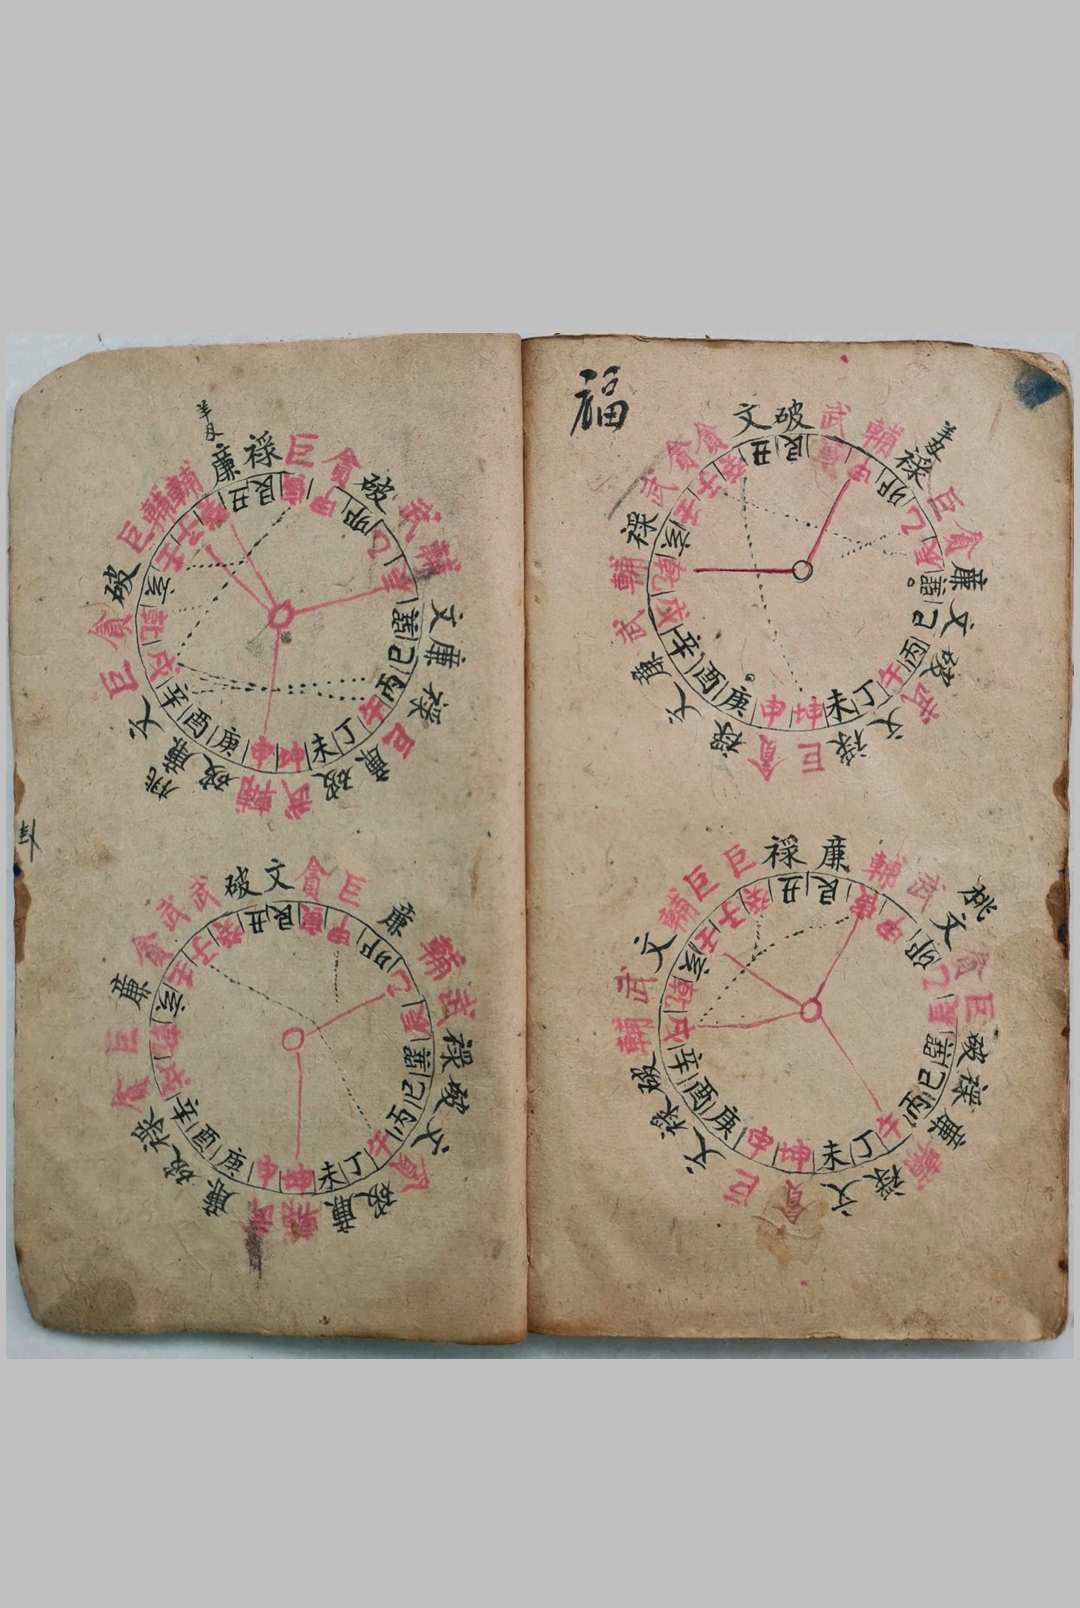 福
文破武輔禄巨貪廉文破武文禄巨貪禄文廉武輔禄武貪貪
丑艮寅甲卯乙辰巽巳丙午丁未坤申庚酉辛戌乾亥壬子癸
禄廉輔武文貪巨破禄廉輔禄文貪巨文禄破輔武文輔巨巨
桃
丑艮寅甲卯乙辰巽巳丙午丁未坤申庚酉辛戌乾亥壬子癸
廉禄巨貪破武輔文廉禄巨廉破武輔破廉文巨貪破巨輔輔
桃
丑艮寅甲卯乙辰巽巳丙午丁未坤申庚酉辛戌乾亥壬子癸
破文貪巨廉輔武禄破文貪破廉輔武廉破禄貪巨廉貪武武
丑艮寅甲卯乙辰巽巳丙午丁未坤申庚酉辛戌乾亥壬子癸